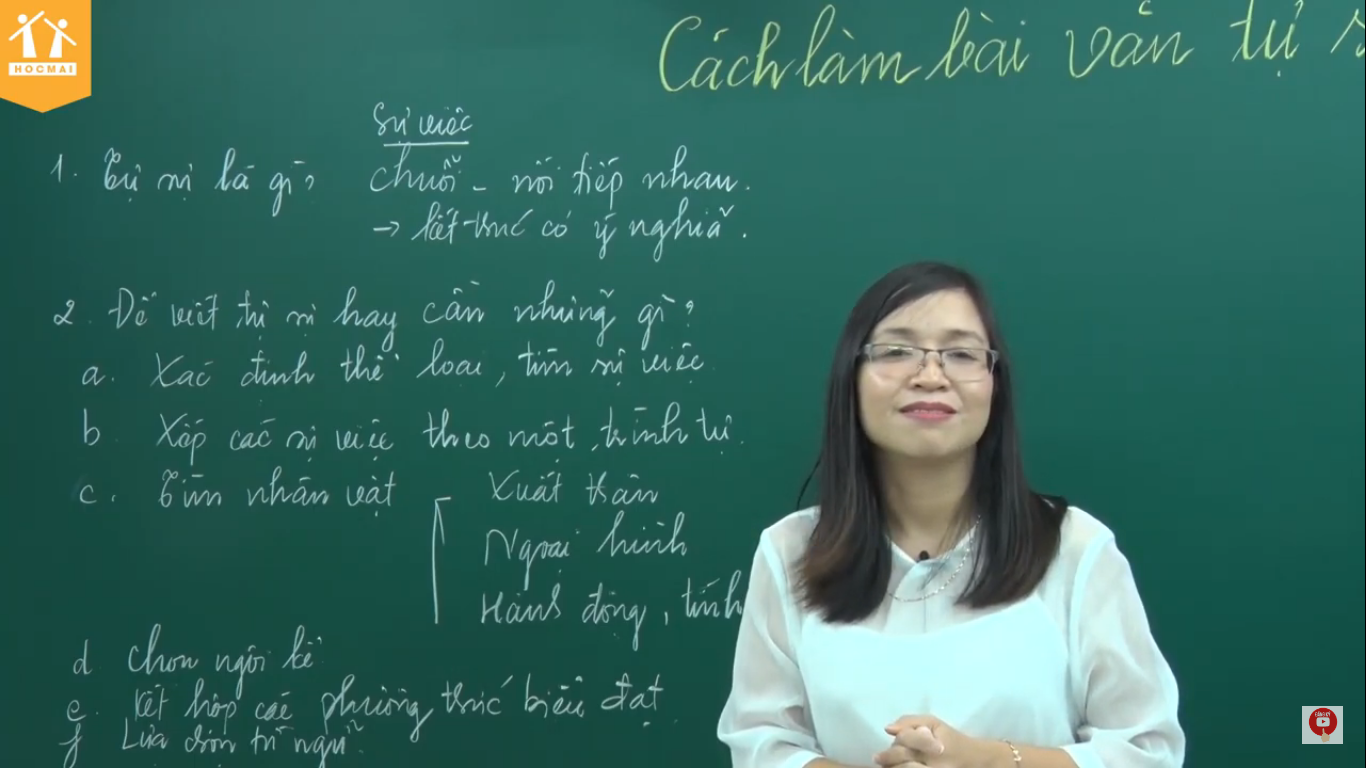 HOCMAI
Cách làm bài văn tự s
Sự việc
1. Tự sự là gì? chuỗi - nối tiếp nhau.
→ kết thúc có ý nghĩa.
2. Để viết tự sự hay cần những gì?
a. Xác định thể loại, tìm sự việc
b. Xắp các sự việc theo một trình tự.
c. Tìm nhân vật
Xuất thân
Ngoại hình
Hành động, tính
d chọn ngôi kể
e. Kết hợp các phương thức biểu đạt
f Lựa chọn từ ngữ.